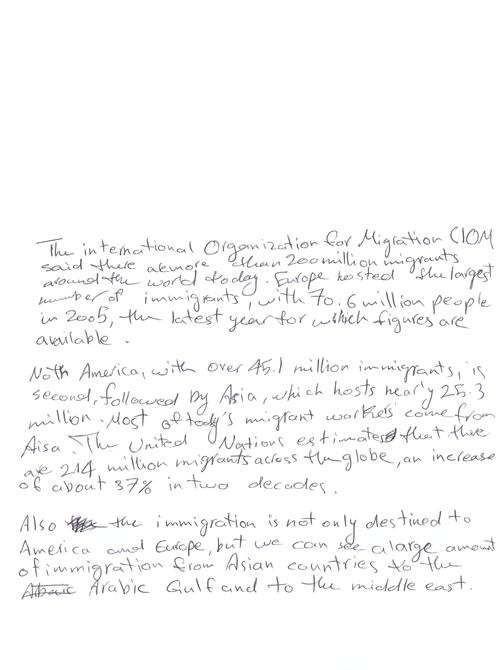 The international Organization for Migration (IOM
said there are more than 200 million migrants
around the world today. Europe hosted the largest
number of immigrants, with 70.6 million people
in 2005, the latest year for which figures are
available.
Noth America, with over 45.1 million immigrants, is
second, followed by Asia, which hosts nearly 25.3
million. Most of today's migrant workers come from
Aisa. The United Nations estimates that there
are 214 million migrants across the globe, an increase
of about 37% in two decades.
Also the immigration is not only destined to
America and Europe, but we can see a large amount
of immigration from Asian countries to the
Arabic Gulf and to the middle east.